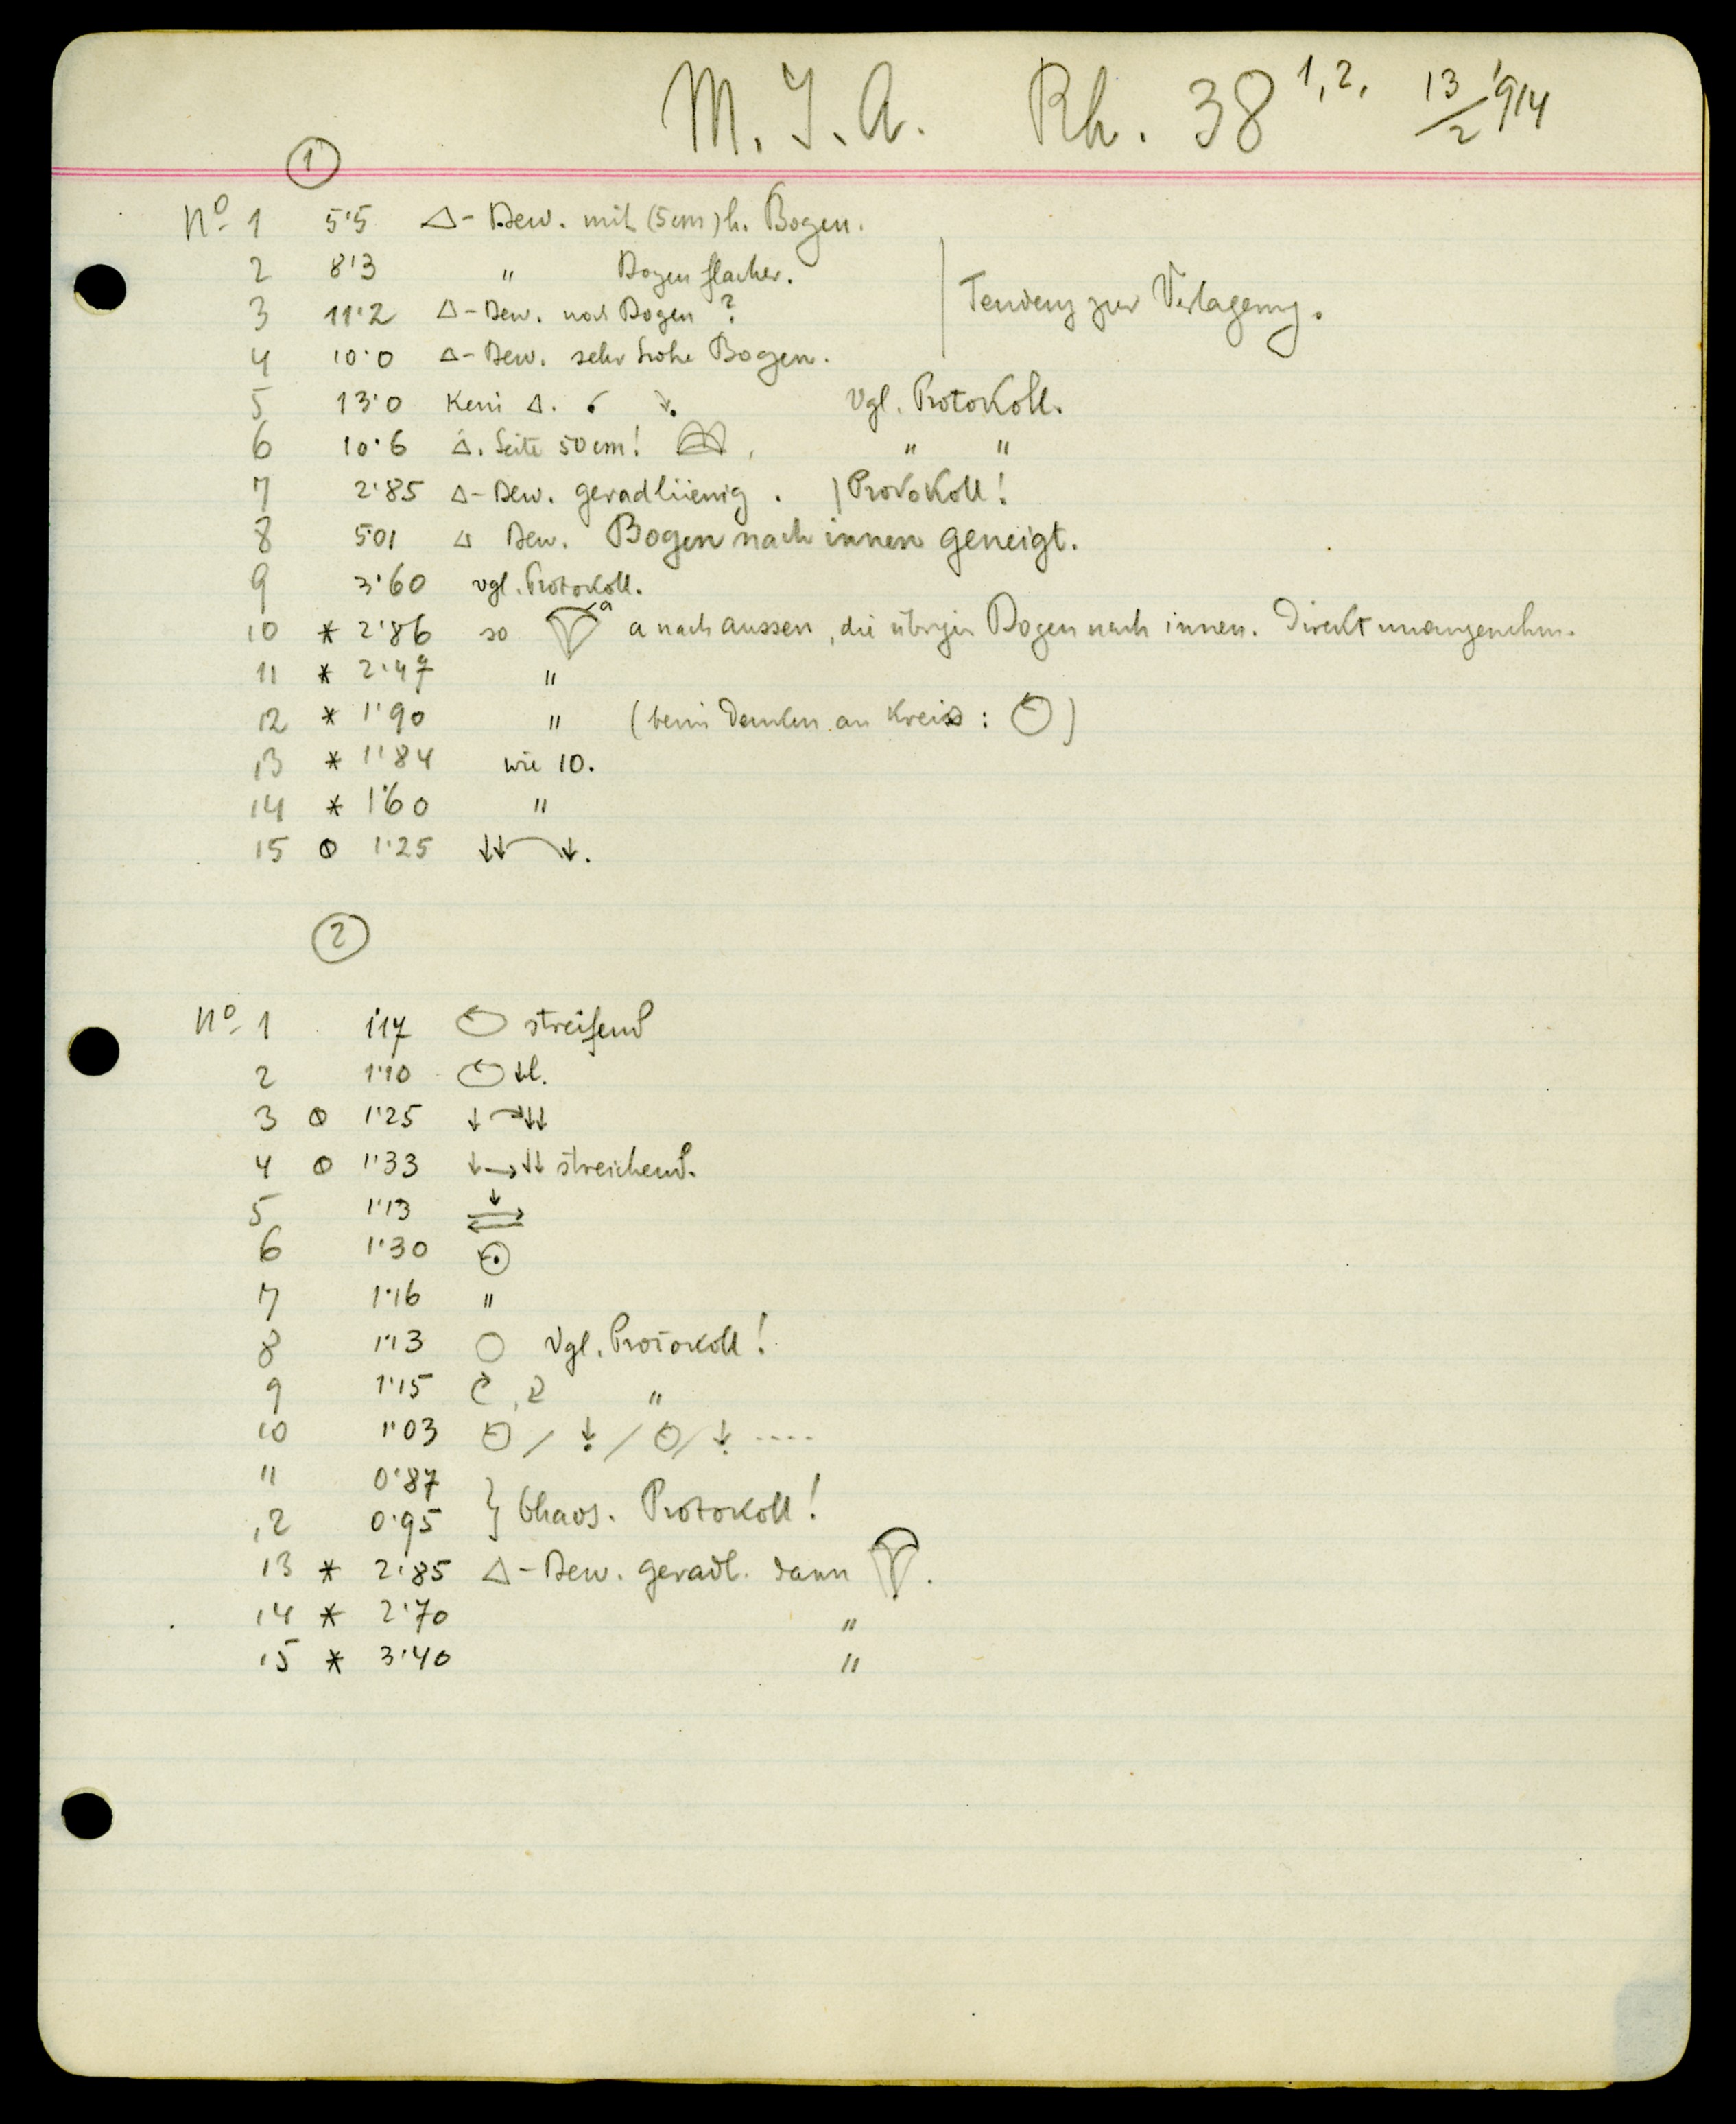 M. J. A. Rh. 38 1,2, 13/2 1914
①
No 1 5'5 △-Bew. mit (5cm) h. Bogen.
2 8'3 " Bogen flacher.
Tendenz zur Verlagerung.
3 11'2 △-Bew. noch Bogen ?
4 10'0 △-Bew. sehr hohe Bogen.
5 13'0 Kein △. ↘ Vgl. Protokoll.
6 10'6 △. Seite 50cm! " "
7 2'85 △-Bew. geradlinienig. Protokoll!
8 5'01 △ Bew. Bogen nach innen geneigt.
9 3'60 vgl. Protokoll.
10 * 2'86 so a a nach aussen, die übrigen Bogen nach innen. Direkt unangenehm.
11 * 2'47 "
12 * 1'90 " (beim Denken an Kreis: ○)
13 * 1'84 wie 10.
14 * 1'60 "
15 1'25 ↓↓ ↓.
②
No 1 1'17 streifend
2 1'10 ↓l.
3 1'25 ↓ → ↓↓
4 1'33 ↓→↓↓ streichend.
5 1'13
6 1'30
7 1'16 "
8 1'13 ○ Vgl. Protokoll!
9 1'15 "
10 1'03 ○ / ↓ / ○ / ↓ ....
11 0'87
Chaos. Protokoll!
12 0'95
13 * 2'85 △-Bew. geradl. dann
14 * 2'70 "
15 * 3'40 "